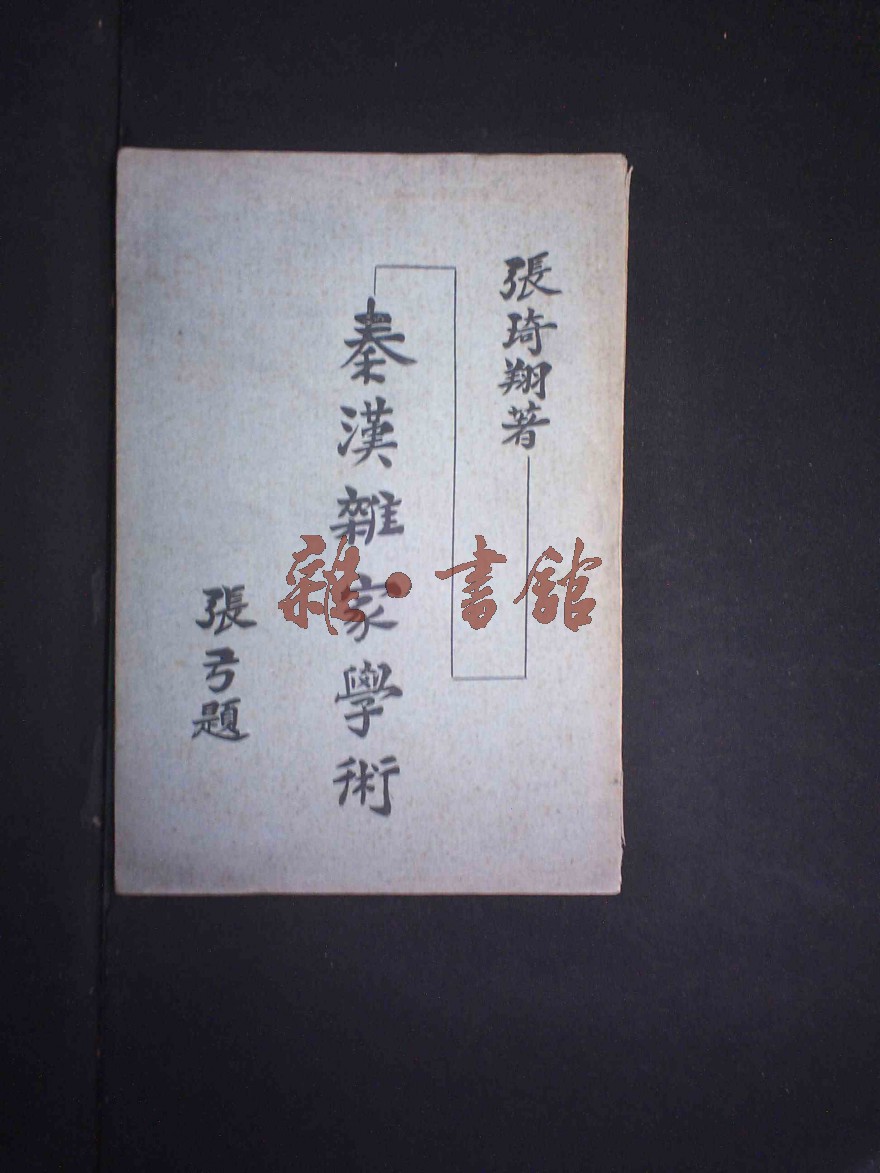 張琦翔著
秦漢雜家學術
張弓題
雜·書館